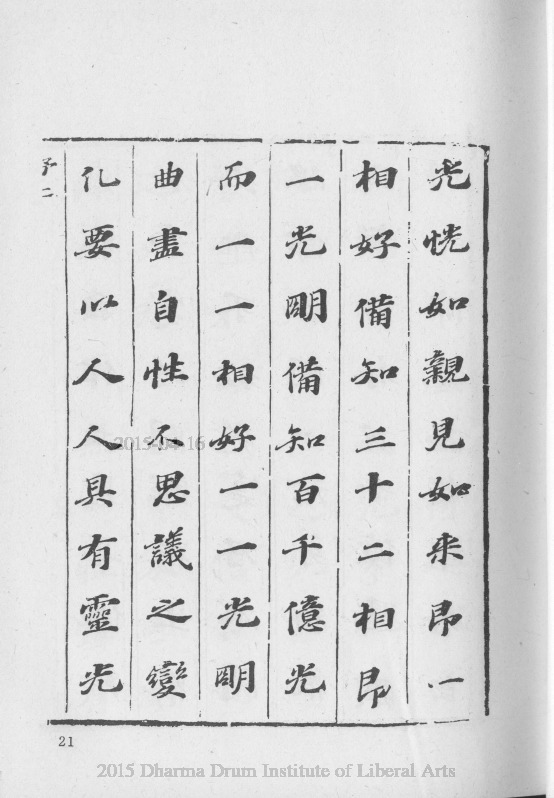 光恍如親見如来即一
相好備知三十二相即
一光明備知百千億光
而一一相好一一光明
曲盡自性不思議之變
化要以人人具有靈光
序二
2015-04-16
21
2015 Dharma Drum Institute of Liberal Arts